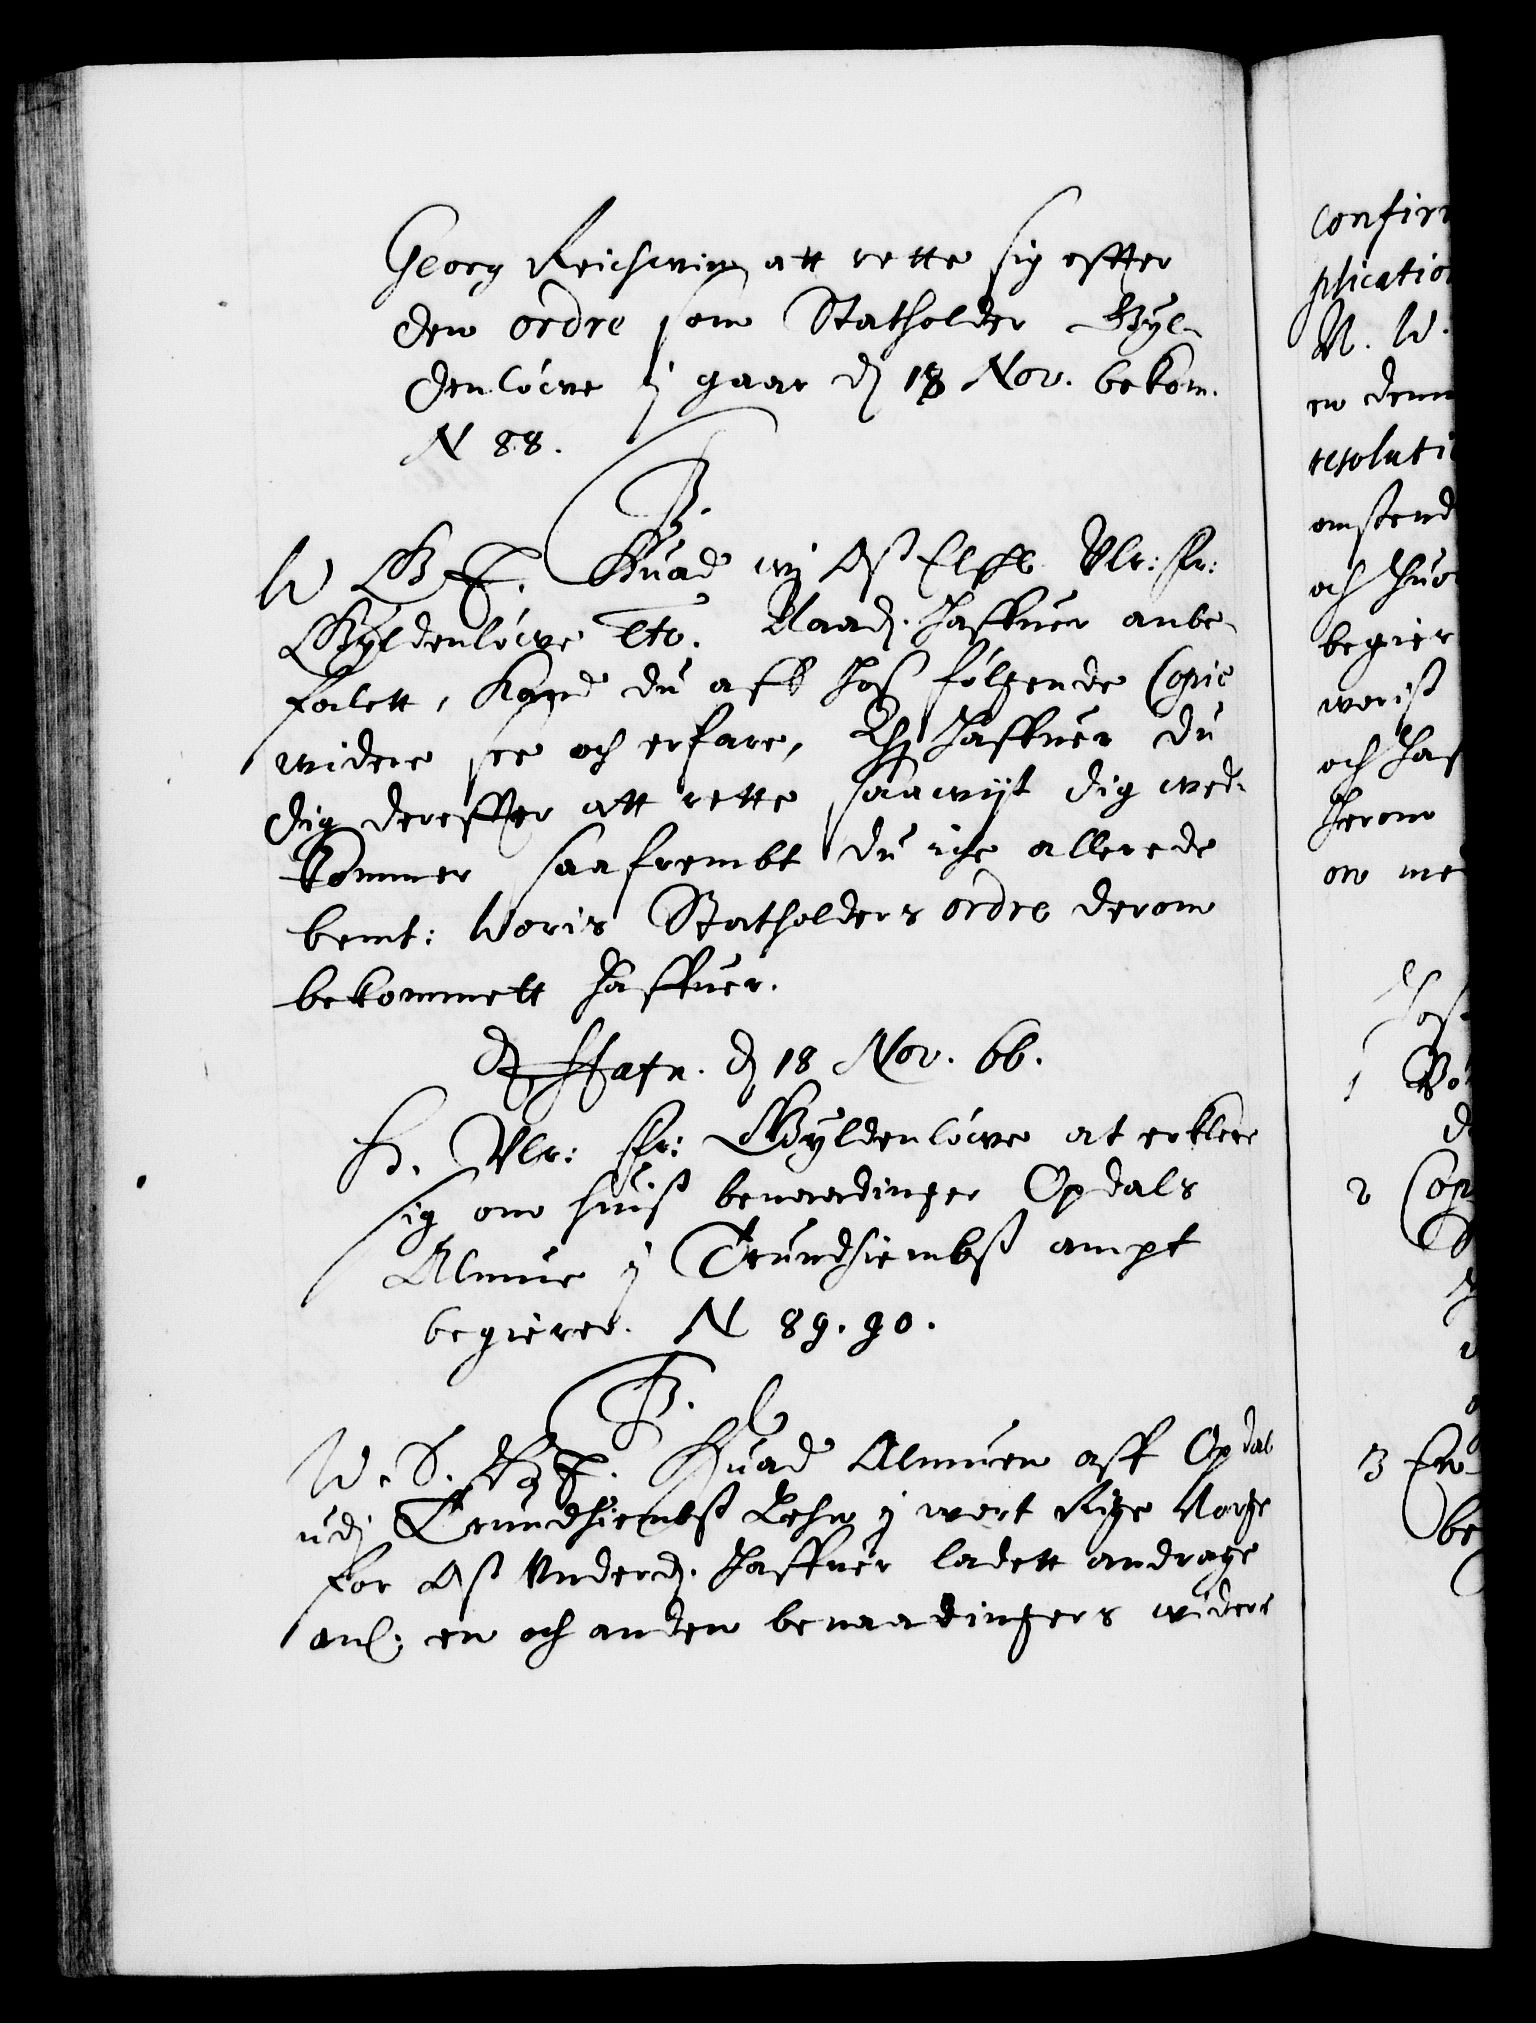 Georg Reichwin att rette sig effter
den ordre som Statholder Gyl-
denlöwe j gaar dj 18 Nov. bekom.
N 88.
W G T. Huad wj Oss Elskl. Vlr: Fr:
Gyldenlöwe etc. Naadj. haffuer anbe-
falett, kand du aff hos fölgende Copie
widere see och erfare, haffuer du
dig dereffter att rette saawijt dig wed-
kommer saafrembt du iche allerede
bemt: Woris Statholders ordre derom
bekommett haffuer.
Hafn. dj 18 Nov. 66.
H. Vlr: Fr: Gyldenlöwe at erklere
sig om huis benaadinger Opdals
Almue j Trundhiembss ampt
begierer. N 89. 90.
W. S. G T. Huad Almuen aff Opdal
udj Trundhiembss Lehn j wort Rige Norge
for Oss Underdj. haffuer ladett andrage
anl: en och anden benaadingers widere
confir
plicatio
N. W.
en denn
resoluti
omstend
och huo
begier
worist
och haf
herom
on me
1
2 Cop
3 En
be